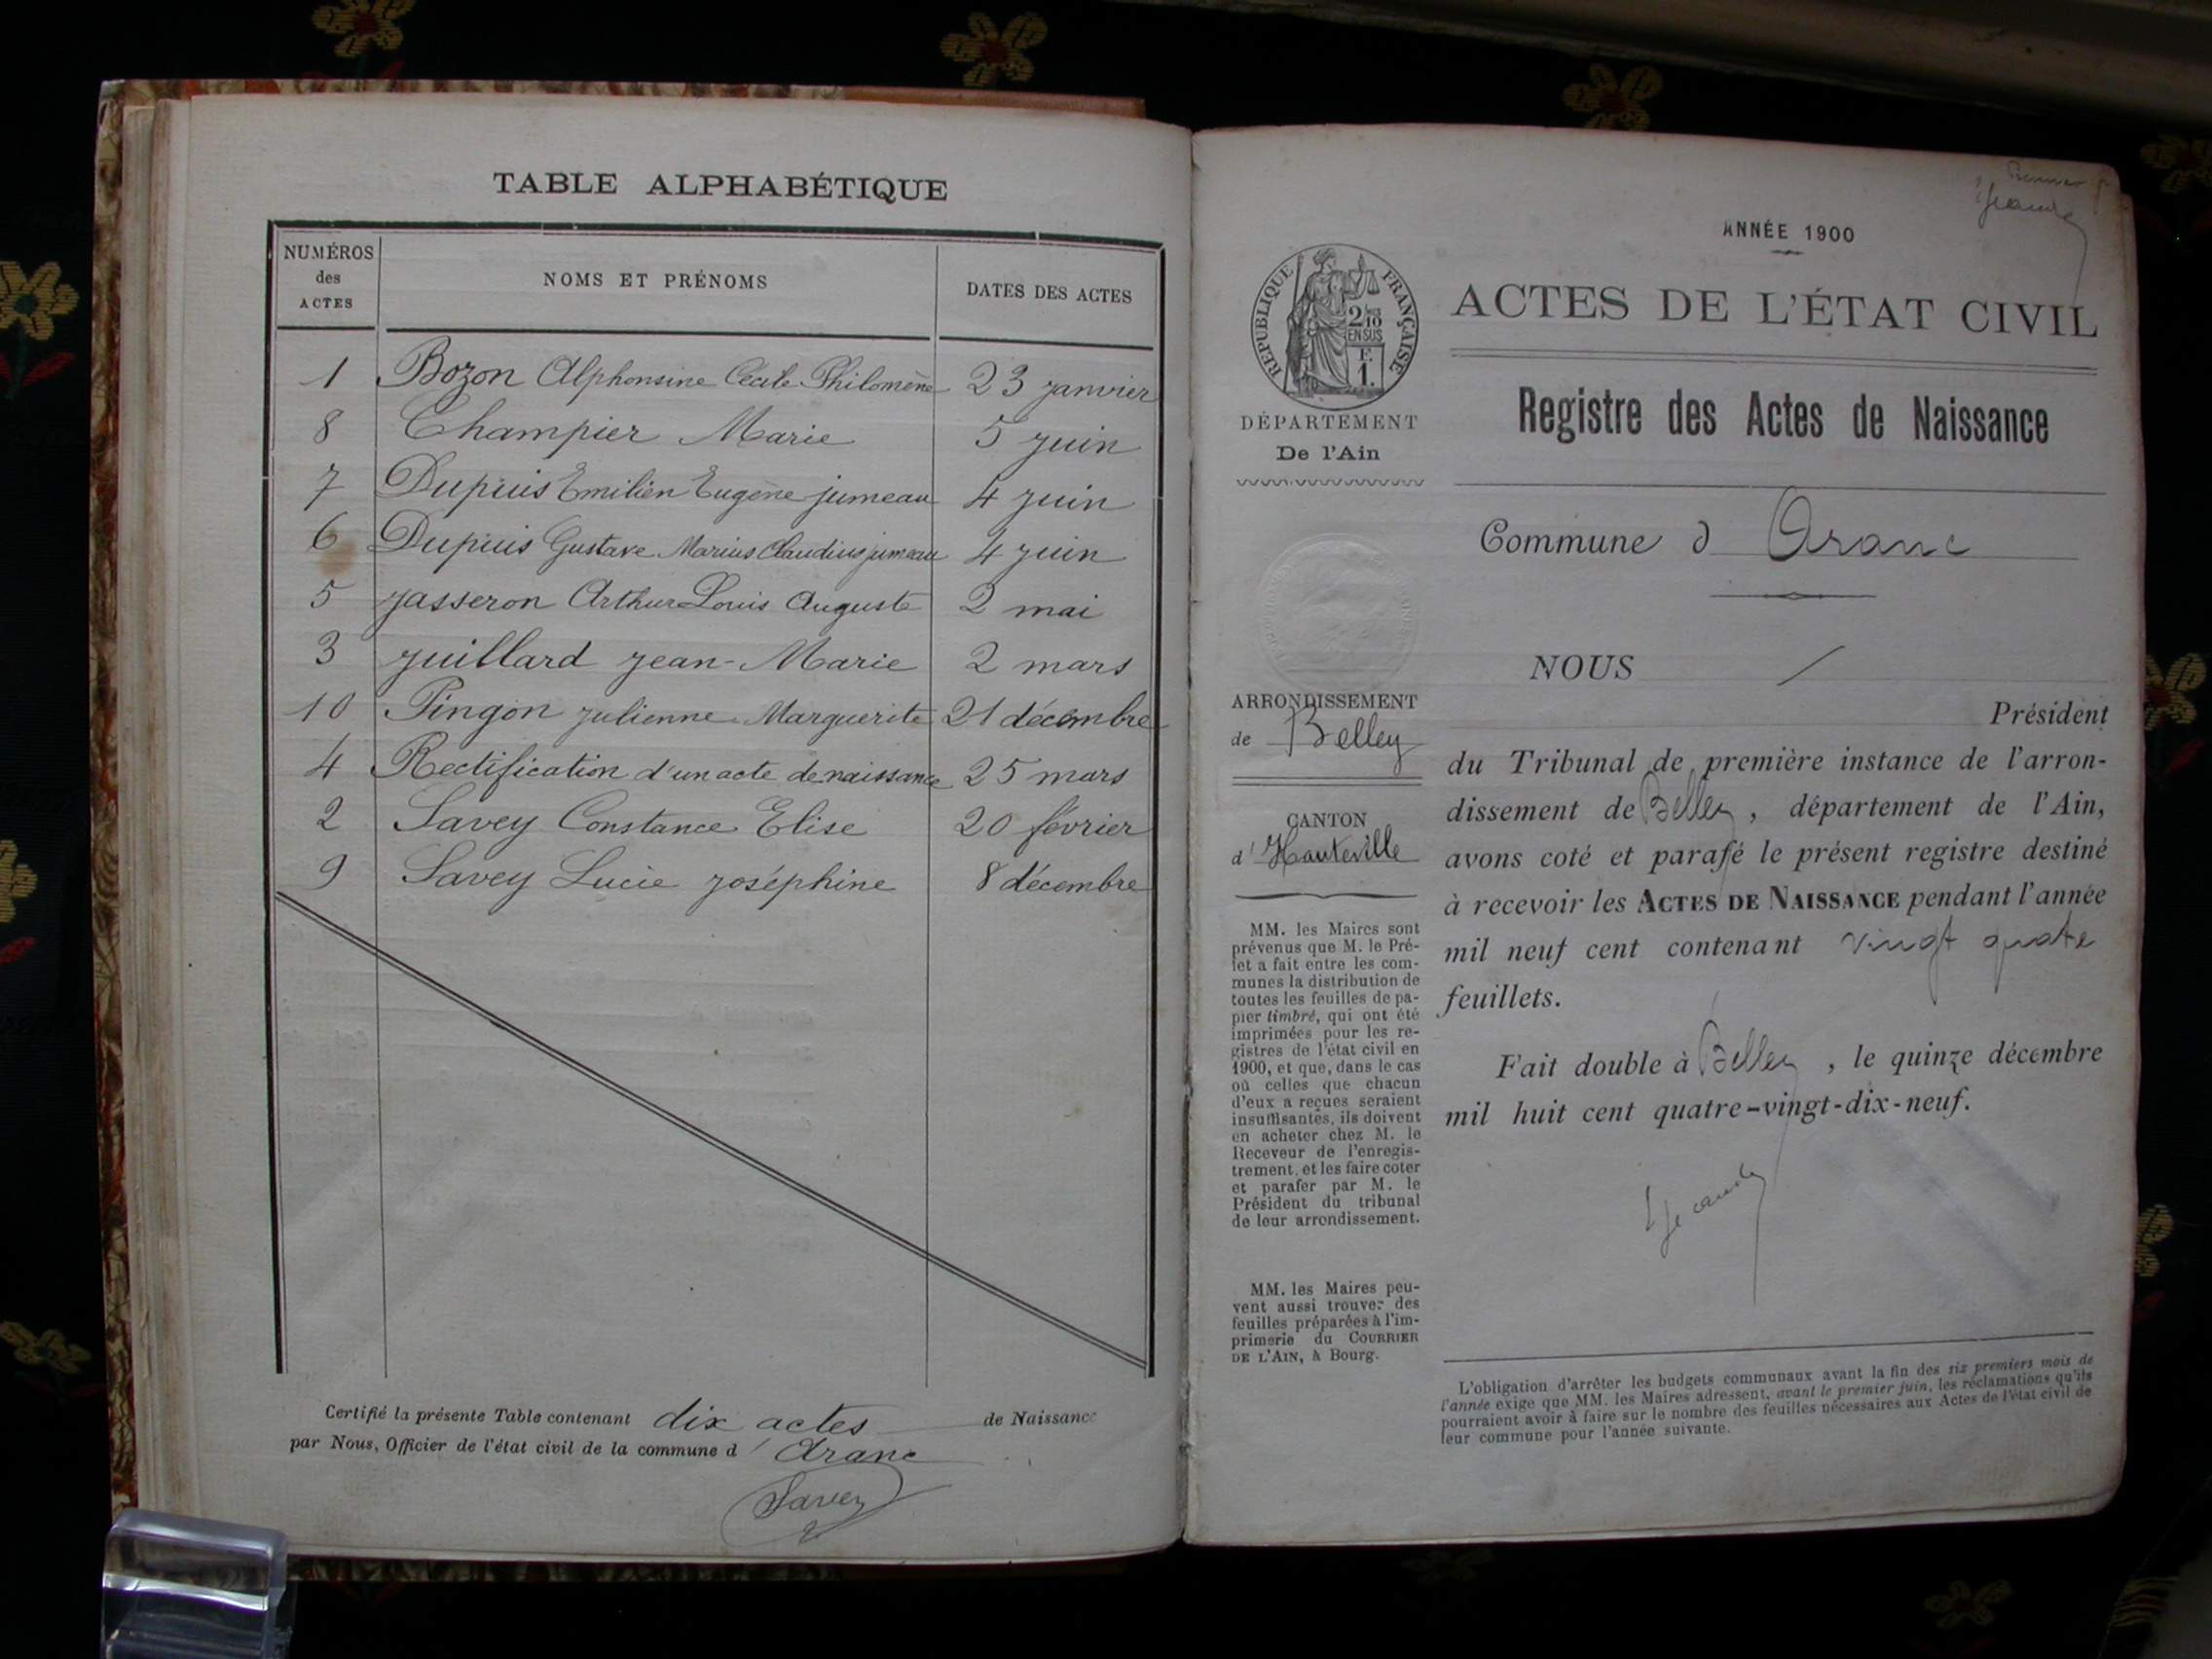 TABLE ALPHABÉTIQUE
NUMÉROS des ACTES NOMS ET PRÉNOMS DATES DES ACTES
1 Bozon Alphonsine Cécile Philomène 23 janvier
8 Champier Marie 5 juin
7 Dupuis Emilien Eugène jumeau 4 juin
6 Dupuis Gustave Marius Claudius jumeau 4 juin
5 Jasseron Arthur Louis Auguste 2 mai
3 Juillard Jean-Marie 2 mars
10 Pingon Julienne Marguerite 21 décembre
4 Rectification d'un acte de naissance 25 mars
2 Savey Constance Elise 20 février
9 Savey Lucie Joséphine 8 décembre
Certifié la présente Table contenant dix actes de Naissance
par Nous, Officier de l'état civil de la commune d'Aranc
Savey
ANNÉE 1900
RÉPUBLIQUE FRANÇAISE
2/10
EN SUS
F.
1.
DÉPARTEMENT
De l'Ain
ARRONDISSEMENT
de Belley
CANTON
d'Hauteville
MM. les Maires sont
prévenus que M. le Pré-
fet a fait entre les com-
munes la distribution de
toutes les feuilles de pa-
pier timbré, qui ont été
imprimées pour les re-
gistres de l'état civil en
1900, et que, dans le cas
où celles que chacun
d'eux a reçues seraient
insuffisantes, ils doivent
en acheter chez M. le
Receveur de l'enregis-
trement, et les faire coter
et parafer par M. le
Président du tribunal
de leur arrondissement.
MM. les Maires peu-
vent aussi trouver des
feuilles préparées à l'im-
primerie du COURRIER
DE L'AIN, à Bourg.
ACTES DE L'ÉTAT CIVIL
Registre des Actes de Naissance
Commune d Aranc
NOUS
Président
du Tribunal de première instance de l'arron-
dissement de Belley, département de l'Ain,
avons coté et parafé le présent registre destiné
à recevoir les ACTES DE NAISSANCE pendant l'année
mil neuf cent contenant vingt quatre
feuillets.
Fait double à Belley, le quinze décembre
mil huit cent quatre-vingt-dix-neuf.
L'obligation d'arrêter les budgets communaux avant la fin des six premiers mois de
l'année exige que MM. les Maires adressent, avant le premier juin, les réclamations qu'ils
pourraient avoir à faire sur le nombre des feuilles nécessaires aux Actes de l'état civil de
leur commune pour l'année suivante.